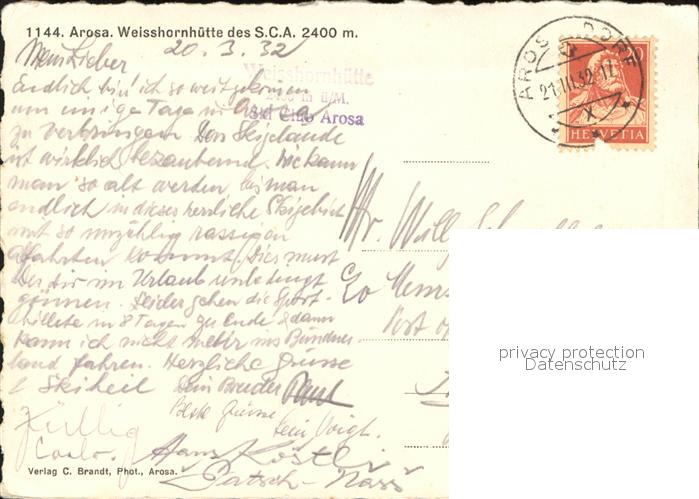 1144. Arosa. Weisshornhütte des S.C.A. 2400 m.
20. 3. 32
Mein Lieber
Endlich bin ich so weit gekommen
um einige Tage in Arosa
zu verbringen. Das Skigelände
ist wirklich bezaubernd. Wie kann
man so alt werden bis man
endlich in dieses herrliche Skigebiet
mit so unzählig rassigen
Abfahrten kommt. Dies musst
Du dir im Urlaub unbedingt
gönnen. Leider gehen die Sport-
billete in 8 Tagen zu Ende & dann
kann ich nicht mehr ins Bündner-
land fahren. Herzliche Grüsse
& Skiheil Dein Bruder Paul
Beste Grüsse
Voigt.
Carlo.
Hans
Verlag C. Brandt, Phot., Arosa.
Weisshornhütte
Ski Club Arosa
AROSA DORF
21.III.32
X
HELVETIA
Mr. Willy
Co
Post
privacy protection
Datenschutz